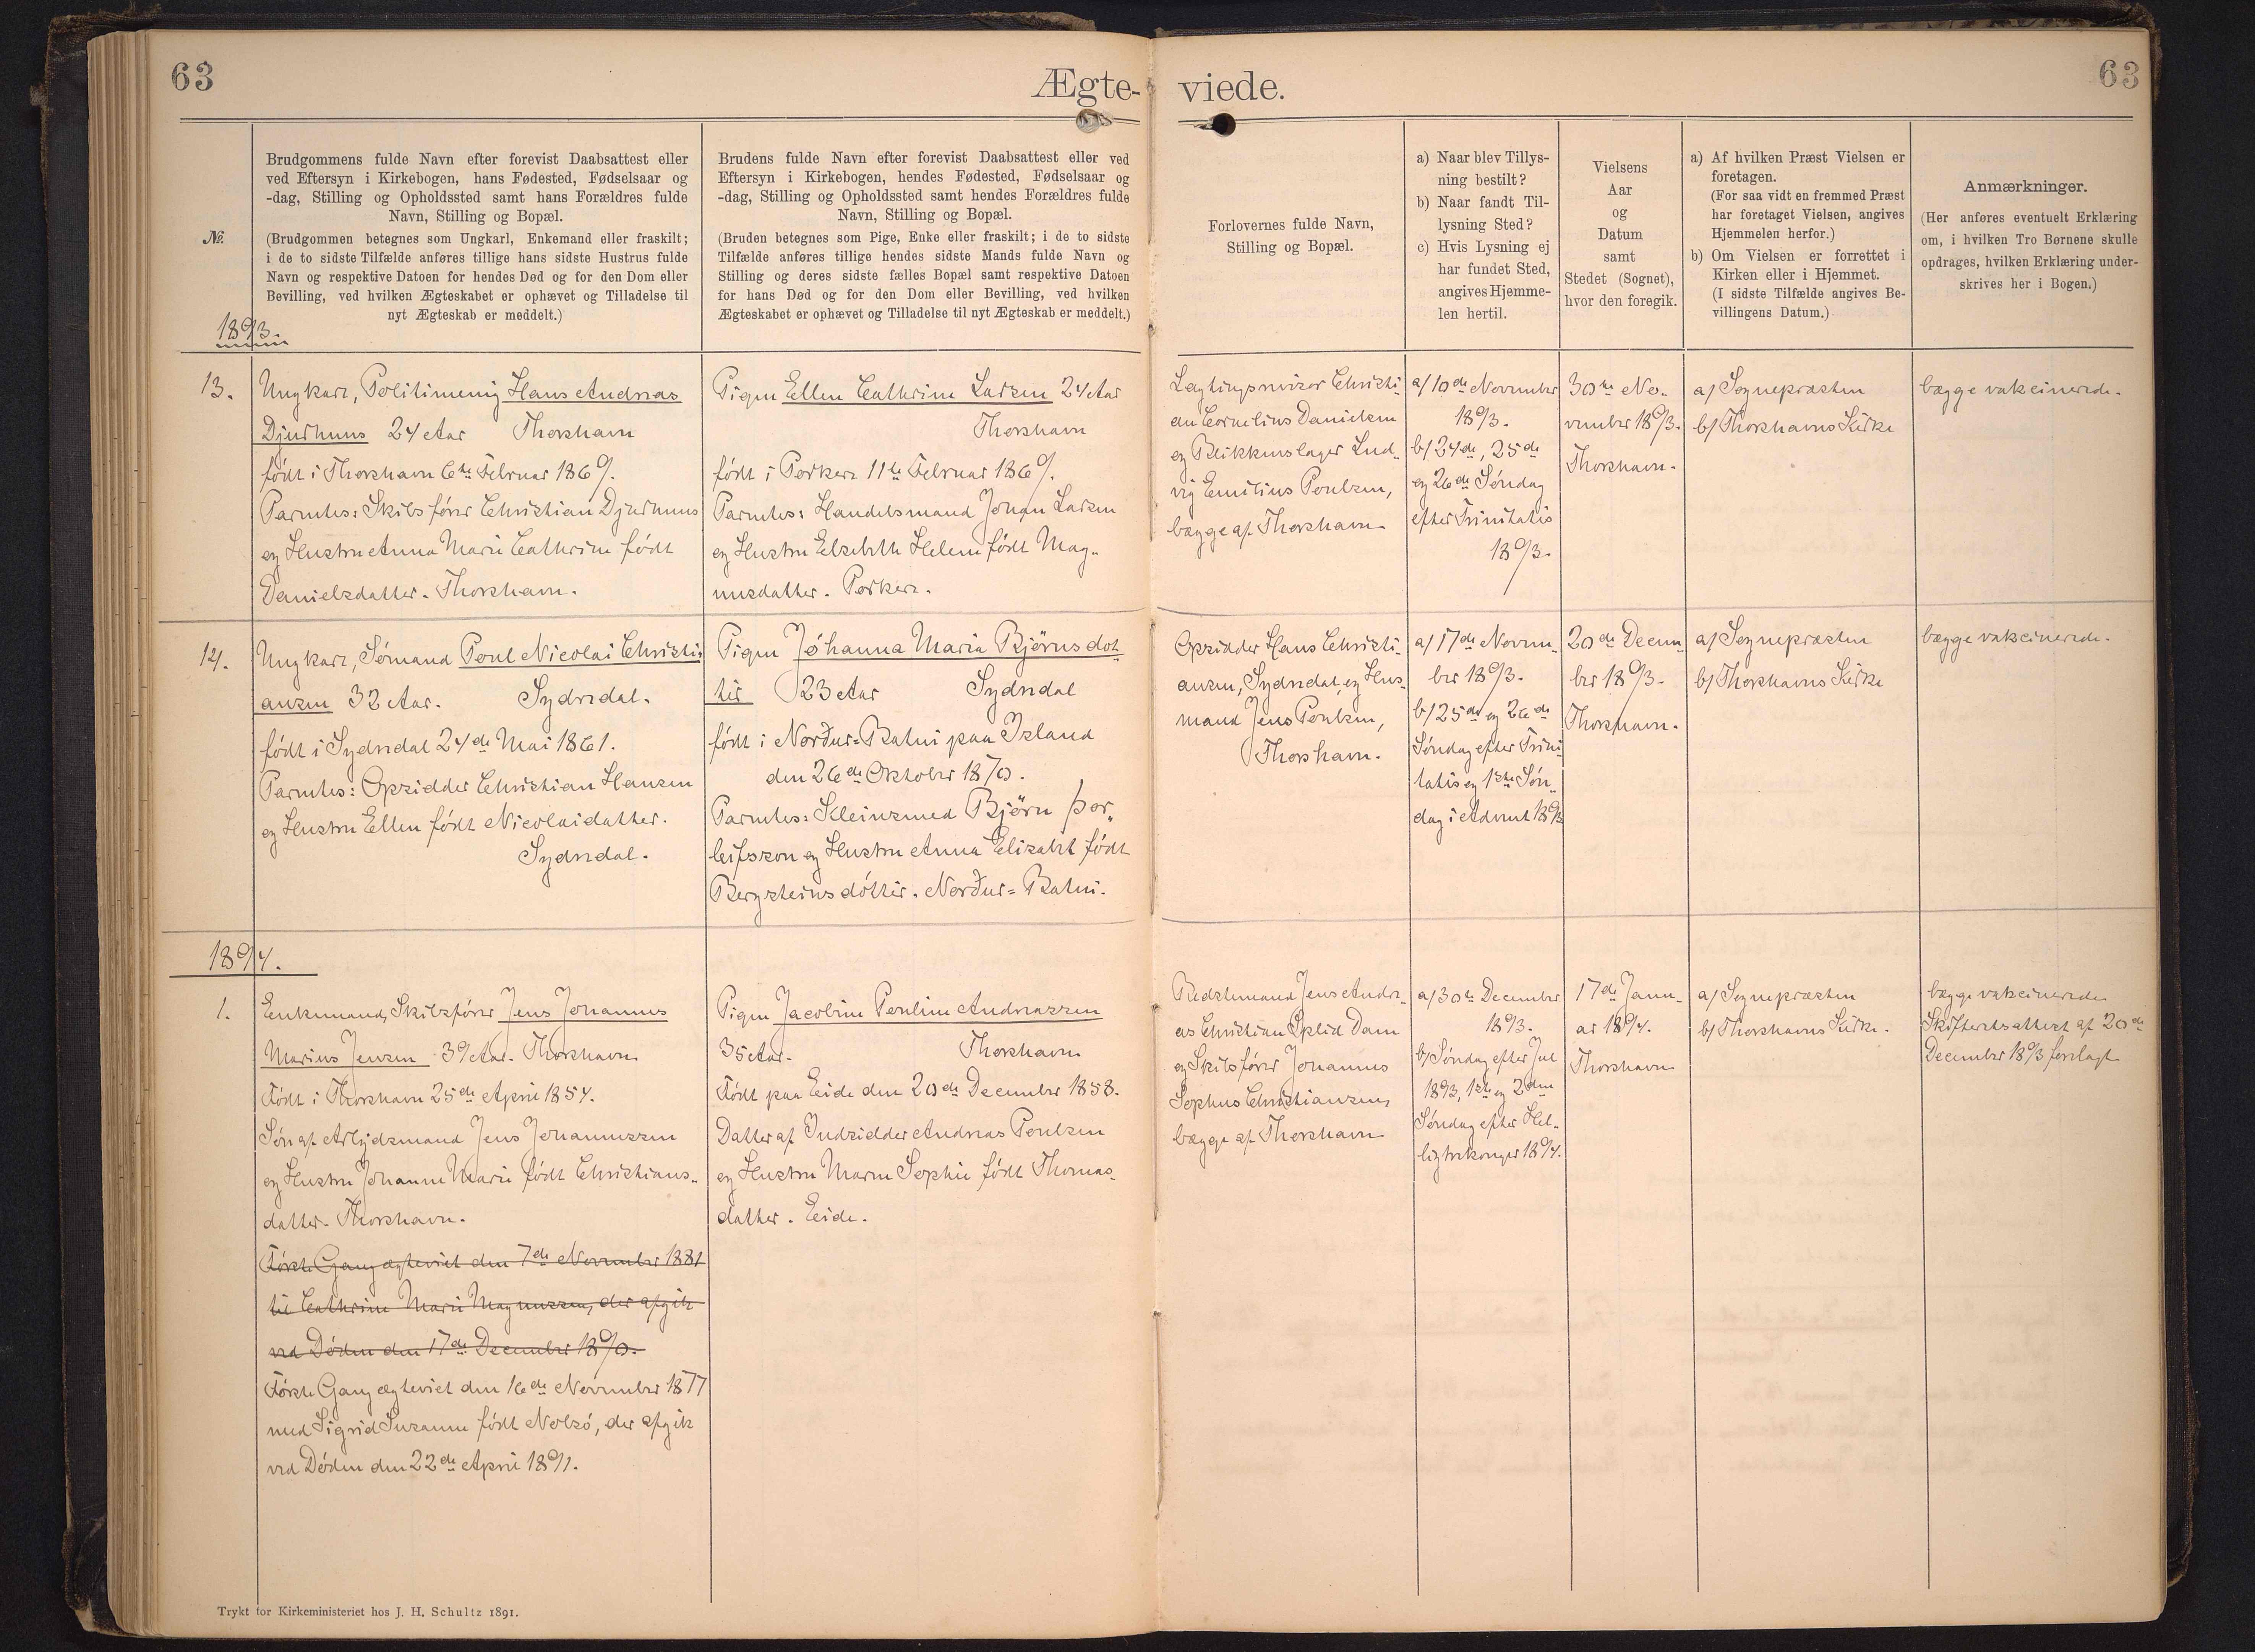 63
Ægte-
viede.
63
№
Brudgommens fulde Navn efter forevist Daabsattest eller
ved Eftersyn i Kirkebogen, hans Fødested, Fødselsaar og
-dag, Stilling og Opholdssted samt hans Forældres fulde
Navn, Stilling og Bopæl.
(Brudgommen betegnes som Ungkarl, Enkemand eller fraskilt;
i de to sidste Tilfælde anføres tillige hans sidste Hustrus fulde
Navn og respektive Datoen for hendes Død og for den Dom eller
Bevilling, ved hvilken Ægteskabet er ophævet og Tilladelse til
nyt Ægteskab er meddelt.)
Brudens fulde Navn efter forevist Daabsattest eller ved
Eftersyn i Kirkebogen, hendes Fødested, Fødselsaar og
-dag, Stilling og Opholdssted samt hendes Forældres fulde
Navn, Stilling og Bopæl.
(Bruden betegnes som Pige, Enke eller fraskilt; i de to sidste
Tilfælde anføres tillige hendes sidste Mands fulde Navn og
Stilling og deres sidste fælles Bopæl samt respektive Datoen
for hans Død og for den Dom eller Bevilling, ved hvilken
Ægteskabet er ophævet og Tilladelse til nyt Ægteskab er meddelt.)
Forlovernes fulde Navn,
Stilling og Bopæl.
a) Naar blev Tillys-
ning bestilt?
b) Naar fandt Til-
lysning Sted?
c) Hvis Lysning ej
har fundet Sted,
angives Hjemme-
len hertil.
Vielsens
Aar
og
Datum
samt
Stedet (Sognet),
hvor den foregik.
a) Af hvilken Præst Vielsen er
foretagen.
(For saa vidt en fremmed Præst
har foretaget Vielsen, angives
Hjemmelen herfor.)
b) Om Vielsen er forrettet i
Kirken eller i Hjemmet.
(I sidste Tilfælde angives Be-
villingens Datum.)
Anmærkninger.
(Her anføres eventuelt Erklæring
om, i hvilken Tro Børnene skulle
opdrages, hvilken Erklæring under-
skrives her i Bogen.)
1893.
13.
Ungkarl, Politimenig Hans Andreas
Djurhuus 24 Aar Thorshavn
født i Thorshavn 6te Februar 1869.
Parentes: Skibsfører Christian Djurhuus
og Hustru Anna Marie Cathrine født
Danielsdatter. Thorshavn.
Pigen Ellen Cathrine Larsen 24 Aar
Thorshavn
født i Porkere 11te Februar 1869.
Parentes: Handelsmand Johan Larsen
og Hustru Elsebeth Helene født Mag-
nusdatter. Porkere.
Lagtingsrevisor Christi-
an Cornelius Danielsen
og Blikkenslager Lud-
vig Emilius Poulsen,
begge af Thorshavn
a/ 10de November
1893.
b/ 24de, 25de
og 26de Søndag
efter Trinitatis
1893.
30te No-
vember 1893.
Thorshavn.
a/ Sognepræsten
b/ Thorshavns Kirke
begge vakcinerede.
14.
Ungkarl, Sømand Poul Nicolai Christi-
ansen 32 Aar. Sydredal.
født i Sydredal 24de Mai 1861.
Parentes: Opsidder Christian Hansen
og Hustru Ellen født Nicolaidatter.
Sydredal.
Pigen Jóhanna Maria Björnsdot-
tir 23 Aar Sydredal
født i Norður-Botni paa Island
den 26de Oktober 1870.
Parentes: Kleinsmed Björn Þor-
leifsson og Hustru Anna Elisabet født
Bergsteinsdóttir. Norður-Botni.
Opsidder Hans Christi-
ansen, Sydredal, og Hus-
mand Jens Poulsen,
Thorshavn.
a/ 17de Novem-
ber 1893.
b/ 25de og 26de
Søndag efter Trini-
tatis og 1ste Søn-
dag i Advent 1893
20de Decem-
ber 1893.
Thorshavn.
a/ Sognepræsten
b/ Thorshavns Kirke
begge vakcinerede.
1894.
1.
Enkemand, Skibsfører Jens Johannes
Marius Jensen 39 Aar. Thorshavn
Født i Thorshavn 25de April 1854.
Søn af Arbejdsmand Jens Johannessen
og Hustru Johanne Marie født Christians-
datter. Thorshavn.
Første Gang ægteviet den 7de November 1881
til Cathrine Marie Magnussen, der afgik
ved Døden den 17de December 1890.
Første Gang ægteviet den 16de November 1877
med Sigrid Susanne født Nolsø, der afgik
ved Døden den 22de April 1891.
Pigen Jacobine Pouline Andreassen
35 Aar. Thorshavn
Født paa Eide den 20de December 1858.
Datter af Indsidder Andreas Poulsen
og Hustru Maren Sophie født Thomas-
datter. Eide.
Bedstemand Jens Andre-
as Christian Splid Dam
og Skibsfører Johannes
Sophus Christiansen,
begge af Thorshavn
a/ 30te December
1893.
b/ Søndag efter Jul
1893, 1ste og 2den
Søndag efter Hel-
ligtrekonger 1894.
17de Janu-
ar 1894.
Thorshavn
a/ Sognepræsten
b/ Thorshavns Kirke.
begge vakcinerede
Skifteretsattest af 20de
December 1893 forelagt
Trykt for Kirkeministeriet hos J. H. Schultz 1891.